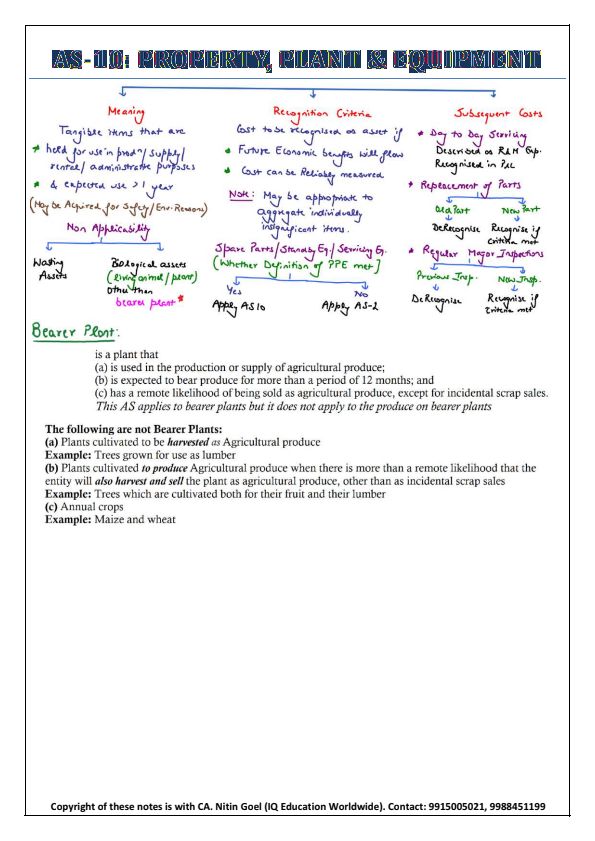 AS-10: PROPERTY, PLANT & EQUIPMENT
Meaning
Tangible items that are
* held for use in prodn/supply/
rental/administrative purposes
* & expected use > 1 year
(May be Acquired for Safety/Env. Reasons)
Non Applicability
Wasting
Assets
Biological assets
(living animal/plant)
other than
bearer plant *
Recognition Criteria
Cost to be recognised as asset if
* Future Economic benefits will flow
* Cost can be Reliably measured
Note: May be appropriate to
aggregate individually
insignificant items.
Spare Parts/Standby Eq./Servicing Eq.
(Whether Definition of PPE met)
Yes
No
Apply AS10
Apply AS-2
Subsequent Costs
* Day to Day Servicing
Described as R&M Exp.
Recognised in P&L
* Replacement of Parts
Old Part
New Part
DeRecognise
Recognise if
criteria met
* Regular Major Inspections
Previous Insp.
New Insp.
DeRecognise
Recognise if
Criteria met
Bearer Plant:
is a plant that
(a) is used in the production or supply of agricultural produce;
(b) is expected to bear produce for more than a period of 12 months; and
(c) has a remote likelihood of being sold as agricultural produce, except for incidental scrap sales.
This AS applies to bearer plants but it does not apply to the produce on bearer plants
The following are not Bearer Plants:
(a) Plants cultivated to be harvested as Agricultural produce
Example: Trees grown for use as lumber
(b) Plants cultivated to produce Agricultural produce when there is more than a remote likelihood that the
entity will also harvest and sell the plant as agricultural produce, other than as incidental scrap sales
Example: Trees which are cultivated both for their fruit and their lumber
(c) Annual crops
Example: Maize and wheat
Copyright of these notes is with CA. Nitin Goel (IQ Education Worldwide). Contact: 9915005021, 9988451199